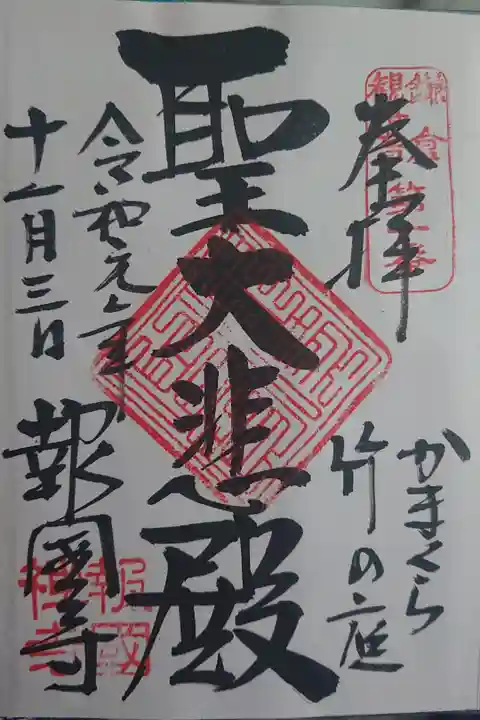 奉拝
かまくら
竹の庭
聖大悲殿
令和元年
十一月三日
報國寺
鎌倉
観音第十番
報國
禅寺